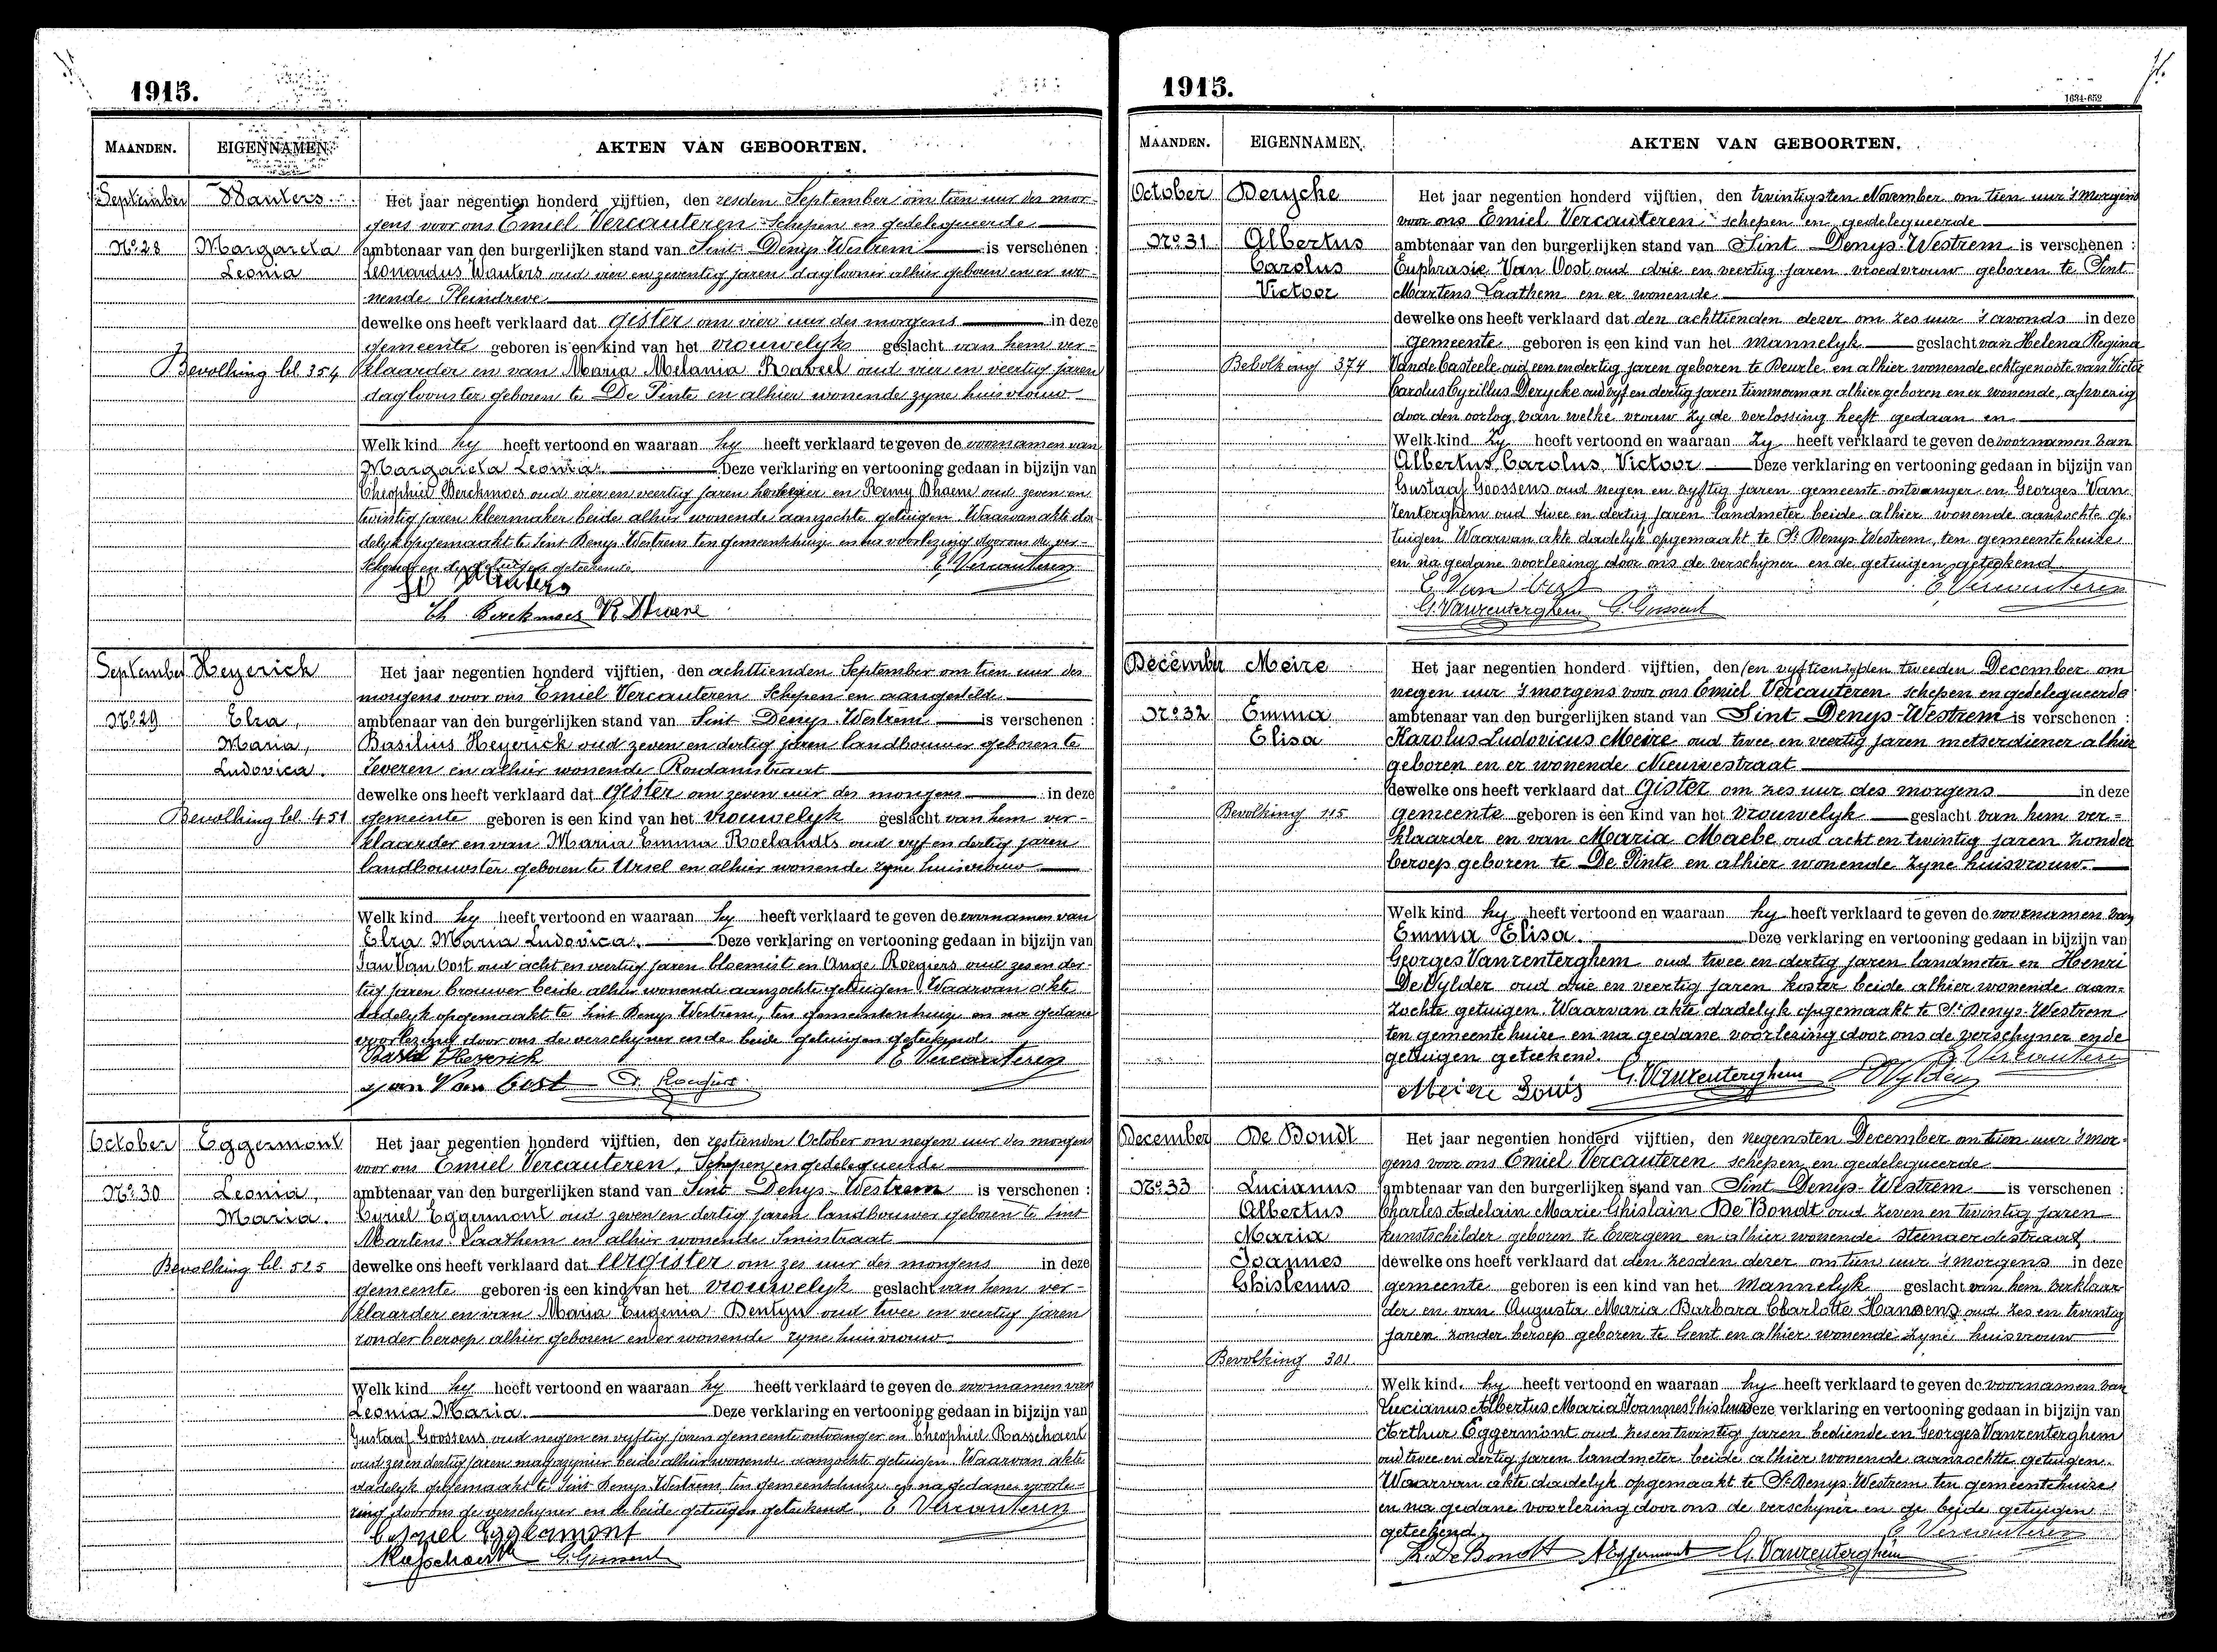 1915.
MAANDEN. EIGENNAMEN. AKTEN VAN GEBOORTEN.
September Wauters Het jaar negentien honderd vijftien, den zesden September om tien uur des mor-
gens voor ons Emiel Vercauteren Schepen en gedelegueerde
No. 28 Margareta ambtenaar van den burgerlijken stand van Sint Denys-Westrem is verschenen :
Leonia Leonardus Wauters oud vier en zeventig jaren daglooner alhier geboren en er wo-
nende Pleindreve
dewelke ons heeft verklaard dat gister om vier uur des morgens in deze
gemeente geboren is een kind van het vrouwelyk geslacht van hem ver-
Bevolking bl. 354 klaarder en van Maria Melania oud vier en veertig jaren
dagloonster geboren te De Pinte en alhier wonende zyne huisvrouw
Welk kind hy heeft vertoond en waaraan hy heeft verklaard te geven de voornamen van
Margareta Leonia. Deze verklaring en vertooning gedaan in bijzijn van
Theophiel Berckmoes oud vier en veertig jaren en Remy Dhaene oud zeven en
twintig jaren kleermaker beide alhier wonende aanzochte getuigen. Waarvan akte da-
delyk opgemaakt te Sint Denys Westrem ten gemeentehuize en na voorlezing door ons de ver-
schyner en de getuigen geteekend. E. Vercauteren
Wauters
Th. Berckmoes R. Dhaene
September Heyerick Het jaar negentien honderd vijftien, den achttienden September om tien uur des
morgens voor ons Emiel Vercauteren Schepen en aangestelde
No. 29 Elza, ambtenaar van den burgerlijken stand van Sint Denys-Westrem is verschenen :
Maria, Basilius Heyerick oud zeven en dertig jaren landbouwer geboren te
Ludovica. Zeveren en alhier wonende Rosdamstraat
dewelke ons heeft verklaard dat gister om zeven uur des morgens in deze
Bevolking bl. 451 gemeente geboren is een kind van het vrouwelyk geslacht van hem ver-
klaarder en van Maria Emma Roelandts oud vyf en dertig jaren
landbouwster geboren te Ursel en alhier wonende zyne huisvrouw
Welk kind hy heeft vertoond en waaraan hy heeft verklaard te geven de voornamen van
Elza Maria Ludovica. Deze verklaring en vertooning gedaan in bijzijn van
Jan Van Oost oud acht en veertig jaren bloemist en Ange Roegiers oud zes en der-
tig jaren brouwer beide alhier wonende aanzochte getuigen. Waarvan akte
dadelyk opgemaakt te Sint Denys Westrem, ten gemeentenhuize en na gedane
voorlezing door ons de verschyner en de beide getuigen geteekend.
Basiel Heyerick E. Vercauteren
Jan Van Oost
October Eggermont Het jaar negentien honderd vijftien, den zestienden October om negen uur des morgens
voor ons Emiel Vercauteren, Schepen en gedelegueerde
No. 30 Leonia, ambtenaar van den burgerlijken stand van Sint Denys-Westrem is verschenen :
Maria. Cyriel Eggermont oud zeven en dertig jaren landbouwer geboren te Sint
Martens Laathem en alhier wonende Smisstraat
Bevolking bl. 525 dewelke ons heeft verklaard dat eergister om zes uur des morgens in deze
gemeente geboren is een kind van het vrouwelyk geslacht van hem ver-
klaarder en van Maria Eugenia Bentyn oud twee en veertig jaren
zonder beroep alhier geboren en er wonende zyne huisvrouw
Welk kind hy heeft vertoond en waaraan hy heeft verklaard te geven de voornamen van
Leonia Maria. Deze verklaring en vertooning gedaan in bijzijn van
Gustaaf Goossens oud negen en vyftig jaren gemeente ontvanger en Theophiel Rasschaert
oud zes en dertig jaren magazynier beide alhier wonende aanzochte getuigen. Waarvan akte
dadelyk opgemaakt te Sint Denys Westrem, ten gemeentehuize en na gedane voorle-
zing door ons de verschyner en de beide getuigen geteekend. E. Vercauteren
Eggermont
Rasschaert
1915.
1634-652
MAANDEN. EIGENNAMEN. AKTEN VAN GEBOORTEN.
October Derycke Het jaar negentien honderd vijftien, den twintigsten November om tien uur 's morgens
voor ons Emiel Vercauteren schepen en gedelegueerde
No. 31 Albertus ambtenaar van den burgerlijken stand van Sint Denys-Westrem is verschenen :
Carolus Euphrasie Van Oost oud drie en veertig jaren vroedvrouw geboren te Sint
Victoor Martens Laathem en er wonende
dewelke ons heeft verklaard dat den achttienden dezer om zes uur 's avonds in deze
gemeente geboren is een kind van het mannelyk geslacht van Helena Regina
Bevolking 374 Vande Casteele oud een en dertig jaren geboren te Deurle en alhier wonende echtgenoote van Victor
Carolus Cyrillus Derycke oud vyf en dertig jaren timmerman alhier geboren en er wonende, afwezig
door den oorlog van welke vrouw zy de verlossing heeft gedaan en
Welk kind zy heeft vertoond en waaraan zy heeft verklaard te geven de voornamen van
Albertus Carolus Victoor Deze verklaring en vertooning gedaan in bijzijn van
Gustaaf Goossens oud negen en vyftig jaren gemeente-ontvanger en Georges Van
Zenterghem oud twee en dertig jaren landmeter beide alhier wonende aanzochte ge-
tuigen. Waarvan akte dadelyk opgemaakt te St Denys Westrem, ten gemeentehuize
en na gedane voorlezing door ons de verschyner en de getuigen geteekend.
E. Van Oost E. Vercauteren
G. Vanrenterghem
December Meire Het jaar negentien honderd vijftien, den tweeden December om
negen uur 's morgens voor ons Emiel Vercauteren schepen en gedelegueerde
No. 32 Emma ambtenaar van den burgerlijken stand van Sint Denys-Westrem is verschenen :
Elisa Karolus Ludovicus Meire oud twee en veertig jaren metserdiener alhier
geboren en er wonende Nieuwestraat
dewelke ons heeft verklaard dat Gister om zes uur des morgens in deze
Bevolking 115 gemeente geboren is een kind van het vrouwelyk geslacht van hem ver-
klaarder en van Maria Maebe oud acht en twintig jaren zonder
beroep geboren te De Pinte en alhier wonende zyne huisvrouw.
Welk kind hy heeft vertoond en waaraan hy heeft verklaard te geven de voornamen van
Emma Elisa. Deze verklaring en vertooning gedaan in bijzijn van
Georges Vanrenterghem oud twee en dertig jaren landmeter en Henri
De Vylder oud drie en veertig jaren koster beide alhier wonende aan-
zochte getuigen. Waarvan akte dadelyk opgemaakt te St Denys-Westrem
ten gemeentehuize en na gedane voorlezing door ons de verschyner en de
getuigen geteekend. E. Vercauteren
Meire Louis G. Vanrenterghem
December De Bondt Het jaar negentien honderd vijftien, den negensten December om tien uur 's mor-
gens voor ons Emiel Vercauteren schepen en gedelegueerde
No. 33 Lucianus ambtenaar van den burgerlijken stand van Sint Denys-Westrem is verschenen :
Albertus Charles Adelain Marie Ghislain De Bondt oud zeven en twintig jaren
Maria kunstschilder geboren te Evergem en alhier wonende Steenaerdestraat
Joannes dewelke ons heeft verklaard dat den zesden dezer om tien uur 's morgens in deze
Ghislenus gemeente geboren is een kind van het mannelyk geslacht van hem verklaar-
der en van Augusta Maria Barbara Charlotte Hanssens oud zes en twintig
jaren zonder beroep geboren te Gent en alhier wonende zyne huisvrouw
Bevolking 301.
Welk kind hy heeft vertoond en waaraan hy heeft verklaard te geven de voornamen van
Lucianus Albertus Maria Joannes Ghislenus Deze verklaring en vertooning gedaan in bijzijn van
Arthur Eggermont oud zes en twintig jaren bediende en Georges Vanrenterghem
oud twee en dertig jaren landmeter beide alhier wonende aanzochte getuigen.
Waarvan akte dadelyk opgemaakt te St Denys-Westrem ten gemeentehuize
en na gedane voorlezing door ons de verschyner en de beide getuigen
geteekend E. Vercauteren
De Bondt Eggermont G. Vanrenterghem